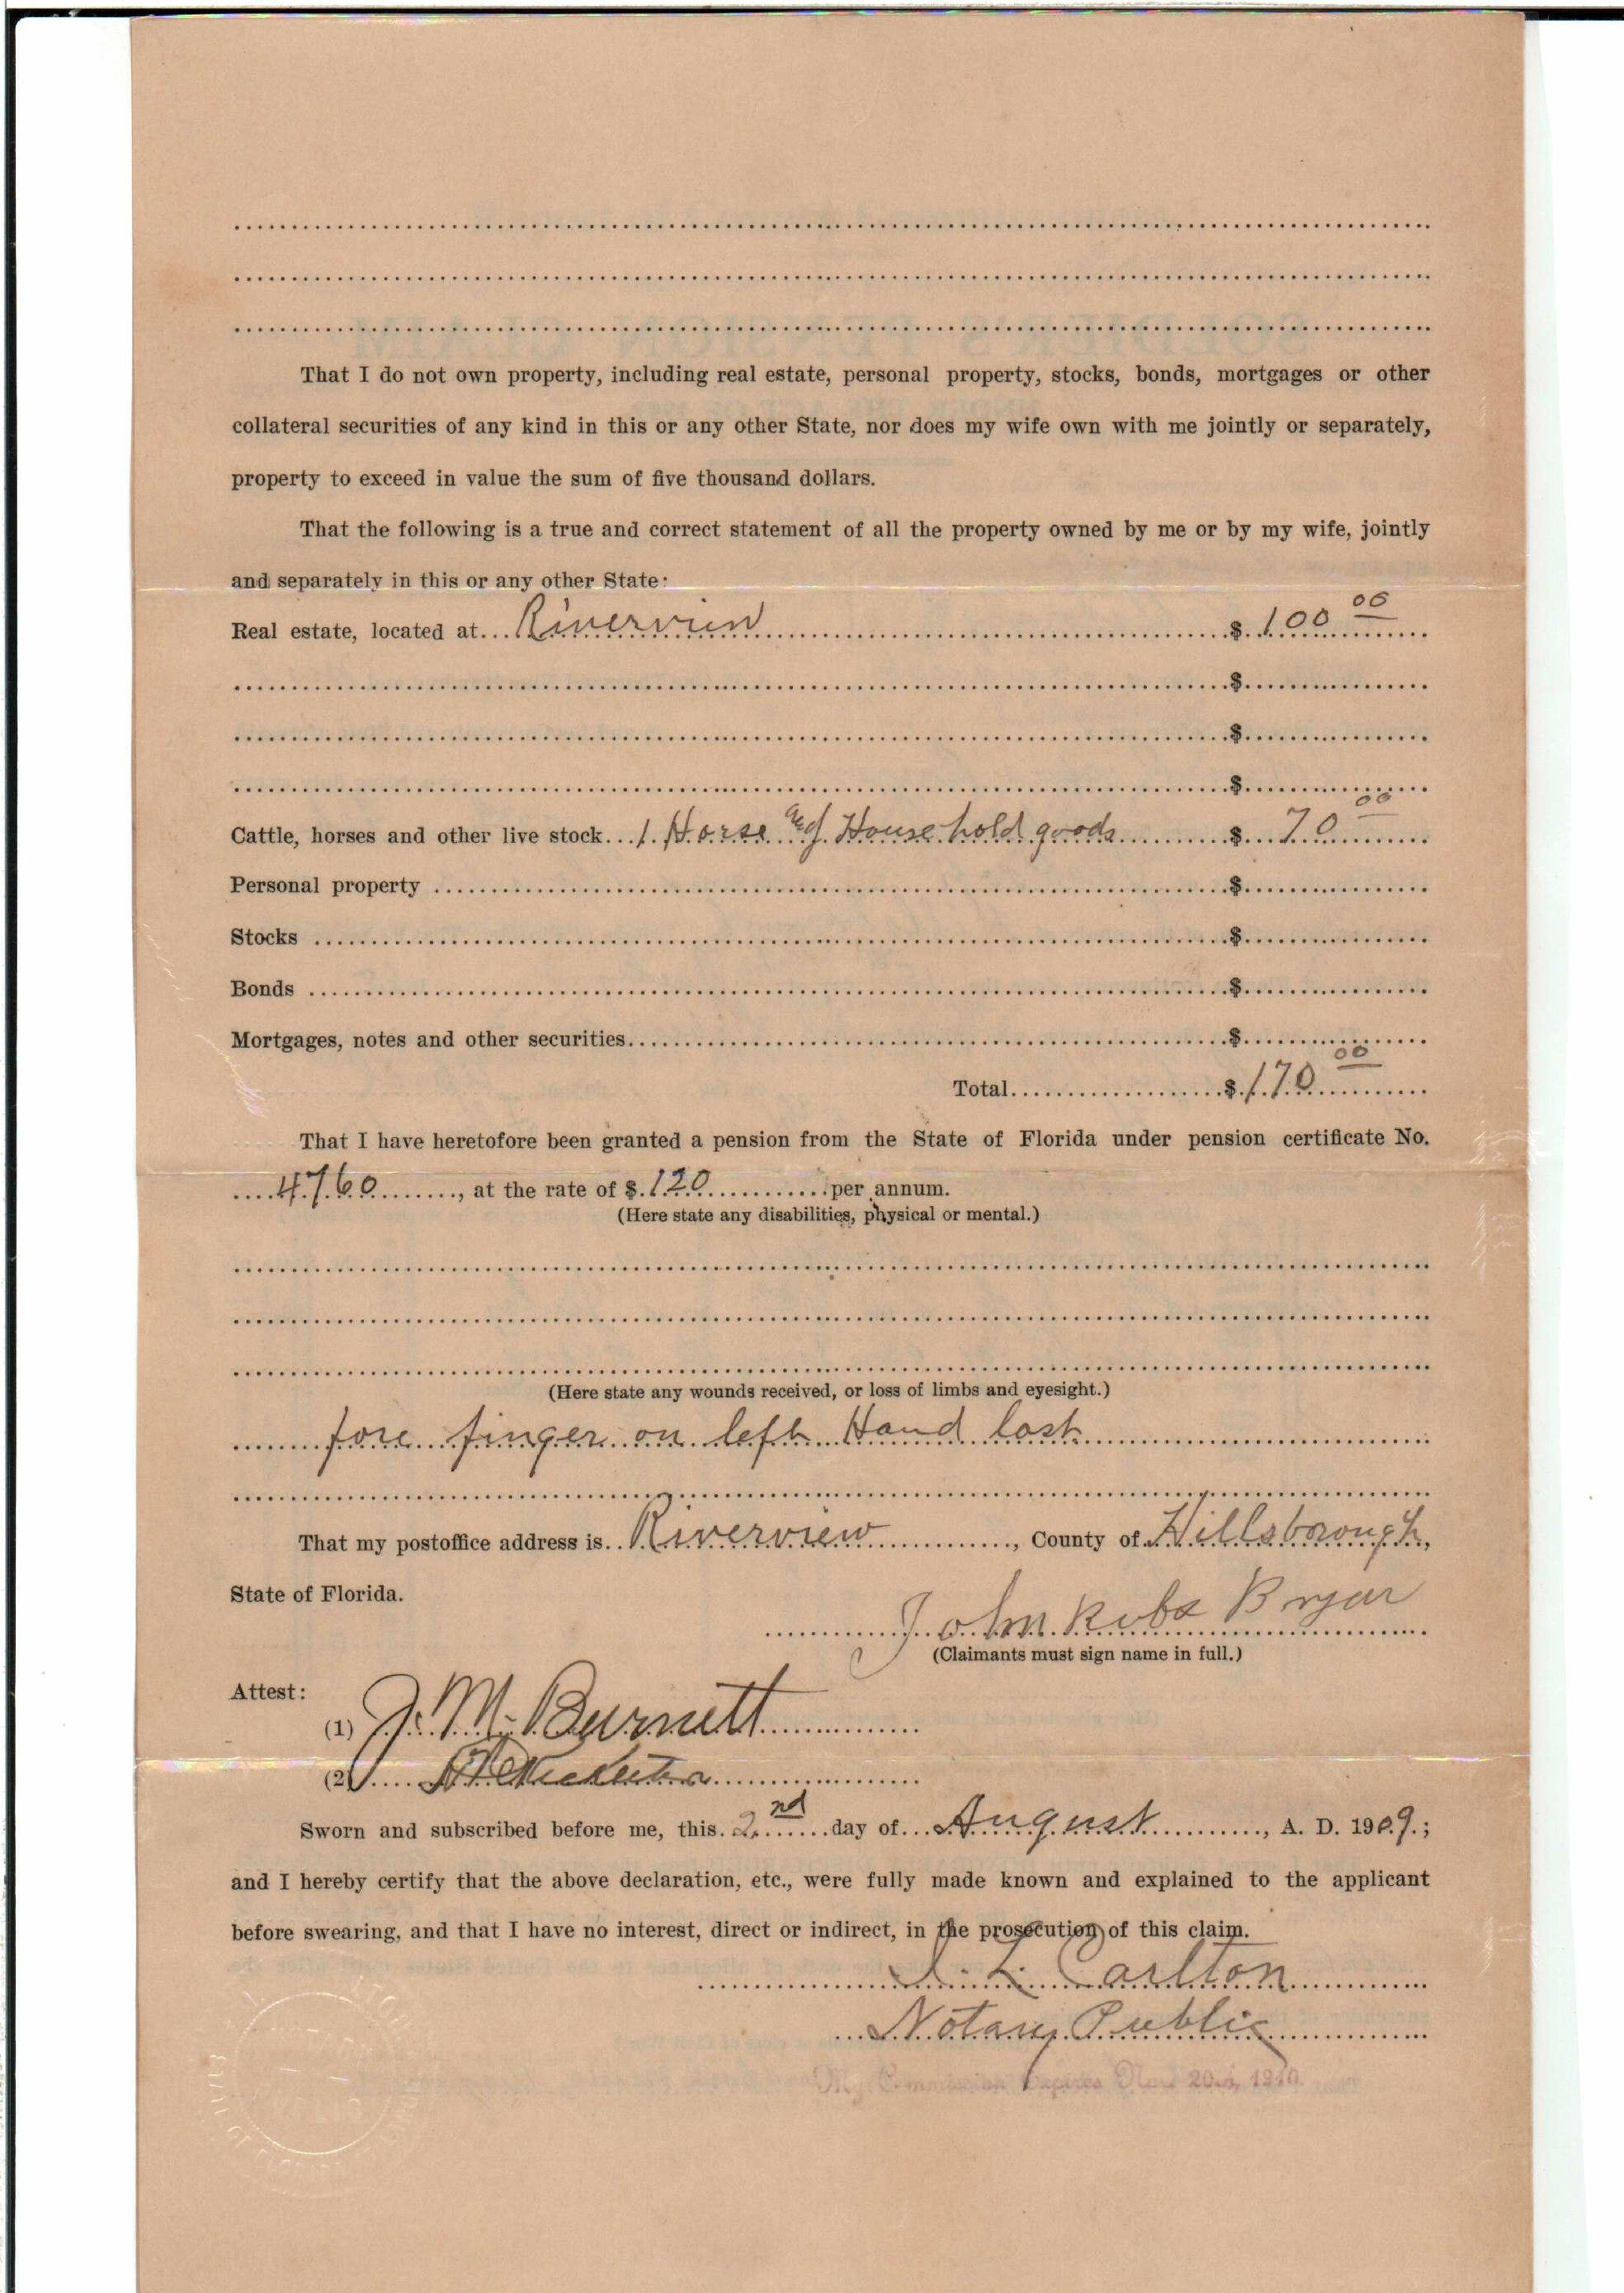 That I do not own property, including real estate, personal property, stocks, bonds, mortgages or other
collateral securities of any kind in this or any other State, nor does my wife own with me jointly or separately,
property to exceed in value the sum of five thousand dollars.
That the following is a true and correct statement of all the property owned by me or by my wife, jointly
and separately in this or any other State:
Real estate, located at Riverview $ 100 00
$
$
$
Cattle, horses and other live stock 1 Horse and Household goods $ 70 00
Personal property $
Stocks $
Bonds $
Mortgages, notes and other securities $
Total $ 170 00
That I have heretofore been granted a pension from the State of Florida under pension certificate No.
4760, at the rate of $ 120 per annum.
(Here state any disabilities, physical or mental.)
(Here state any wounds received, or loss of limbs and eyesight.)
fore finger on left Hand lost
That my postoffice address is Riverview, County of Hillsborough,
State of Florida.
John Bryan
(Claimants must sign name in full.)
Attest:
(1) J. M. Burnett
(2)
Sworn and subscribed before me, this 2nd day of August, A. D. 1909;
and I hereby certify that the above declaration, etc., were fully made known and explained to the applicant
before swearing, and that I have no interest, direct or indirect, in the prosecution of this claim.
L. Carlton
Notary Public
My Commission Expires 20th, 1910